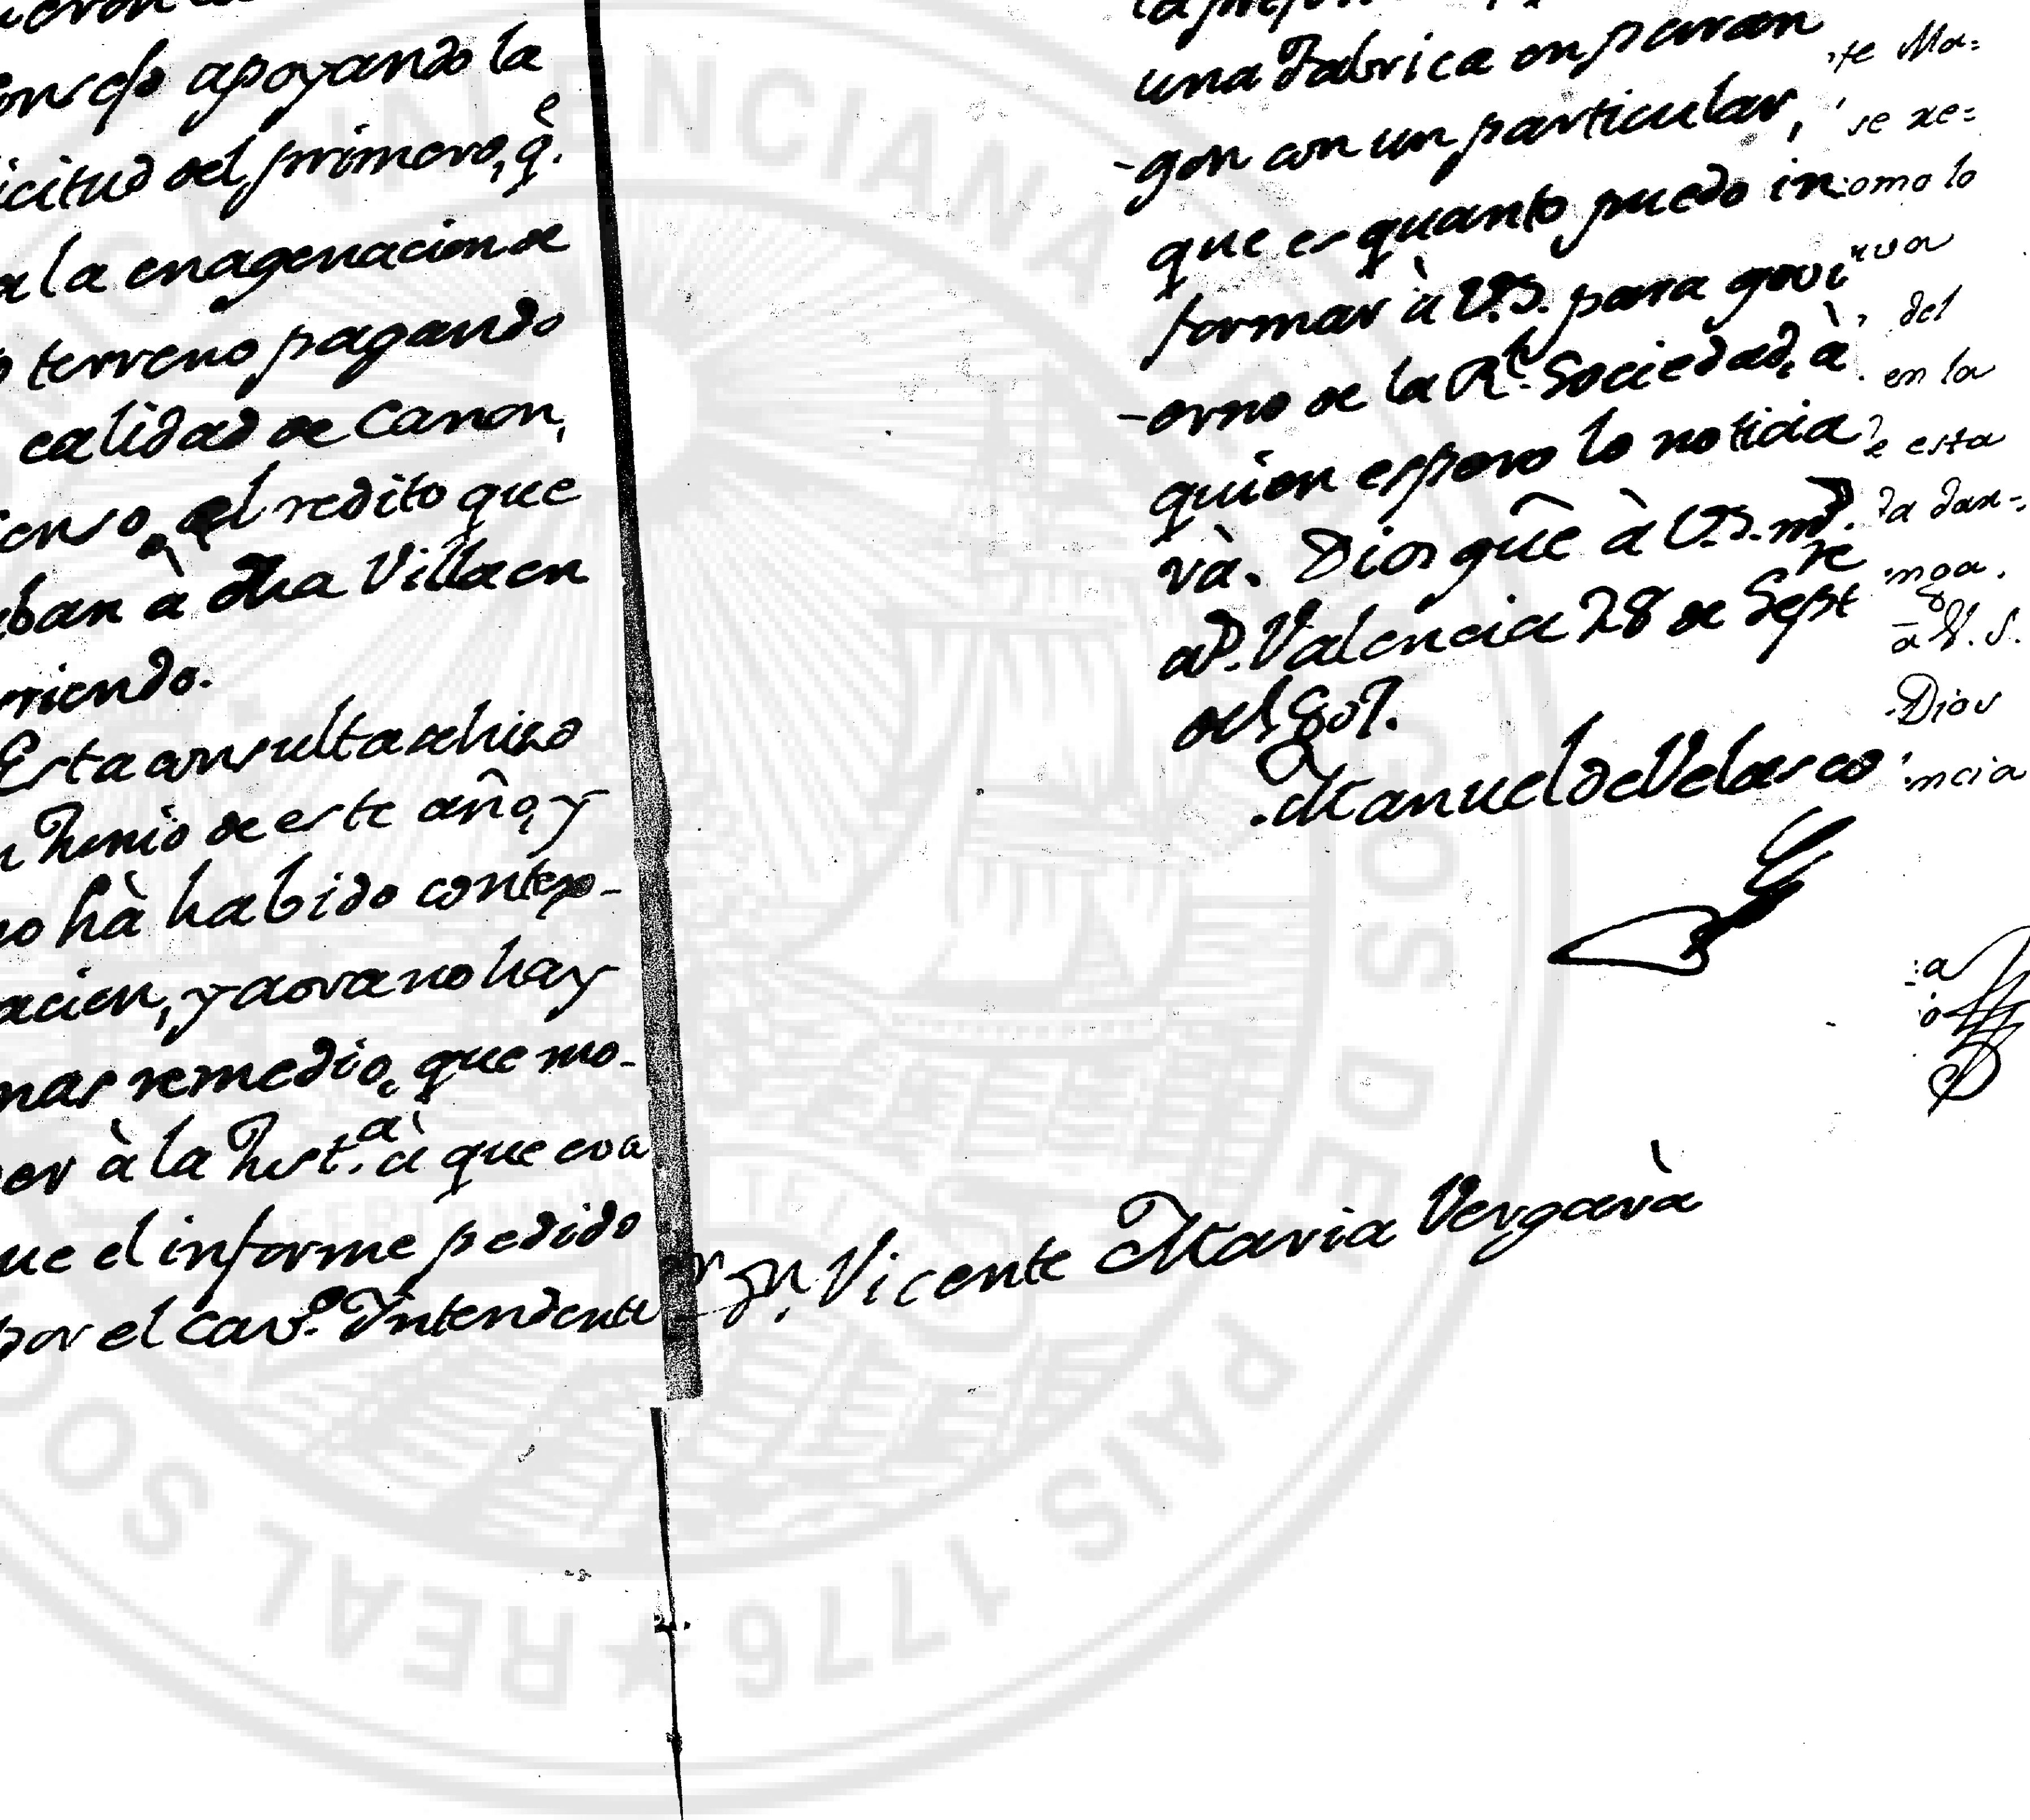 apoyando la
icitud del primero, q.e
a la enagenacion de
terreno pagando
calidad de Canon,
enso, el redito que
ban à dha Villa en
rriendo.
Esta consulta se hizo
n Junio de este año, y
no hà habido contex-
acion, y aora no hay
mas remedio, que mo-
er à la Just.a à que eva
ue el informe pedido
por el Cav.o Intendente
una Fabrica en paran
-gon con un particular,
que es quanto puedo in
formar à V.S. para govi
-erno de la Rl. Sociedad, à
quien espero lo noticia
rà. Dios gûe à V.S. m.s
a.s Valencia 28 de Septre
del 807.
Manuel de Velasco
Sr. Dn. Vicente Maria Vergarà
te Ma=
se xe=
omo lo
del
en la
e esta
da dan=
moa.
a V. S.
Dios
ncia
VALENCIANA
AMIGOS DEL PAIS 1776 ★ REAL SOC